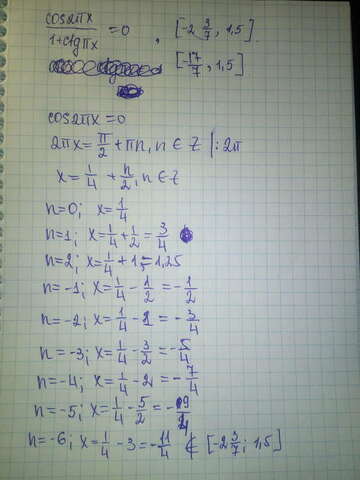 cos2πx/(1+ctgπx) = 0 , [-2 3/7 ; 1,5]
[-17/7 ; 1,5]
cos2πx = 0
2πx = π/2 + πn, n ∈ Z |: 2π
x = 1/4 + n/2, n ∈ Z
n=0; x = 1/4
n=1; x = 1/4 + 1/2 = 3/4
n=2; x = 1/4 + 1 = 1,25
n=-1; x = 1/4 - 1/2 = -1/2
n=-2; x = 1/4 - 1 = -3/4
n=-3; x = 1/4 - 3/2 = -5/4
n=-4; x = 1/4 - 2 = -7/4
n=-5; x = 1/4 - 5/2 = -9/4
n=-6; x = 1/4 - 3 = -11/4 ∉ [-2 3/7 ; 1,5]